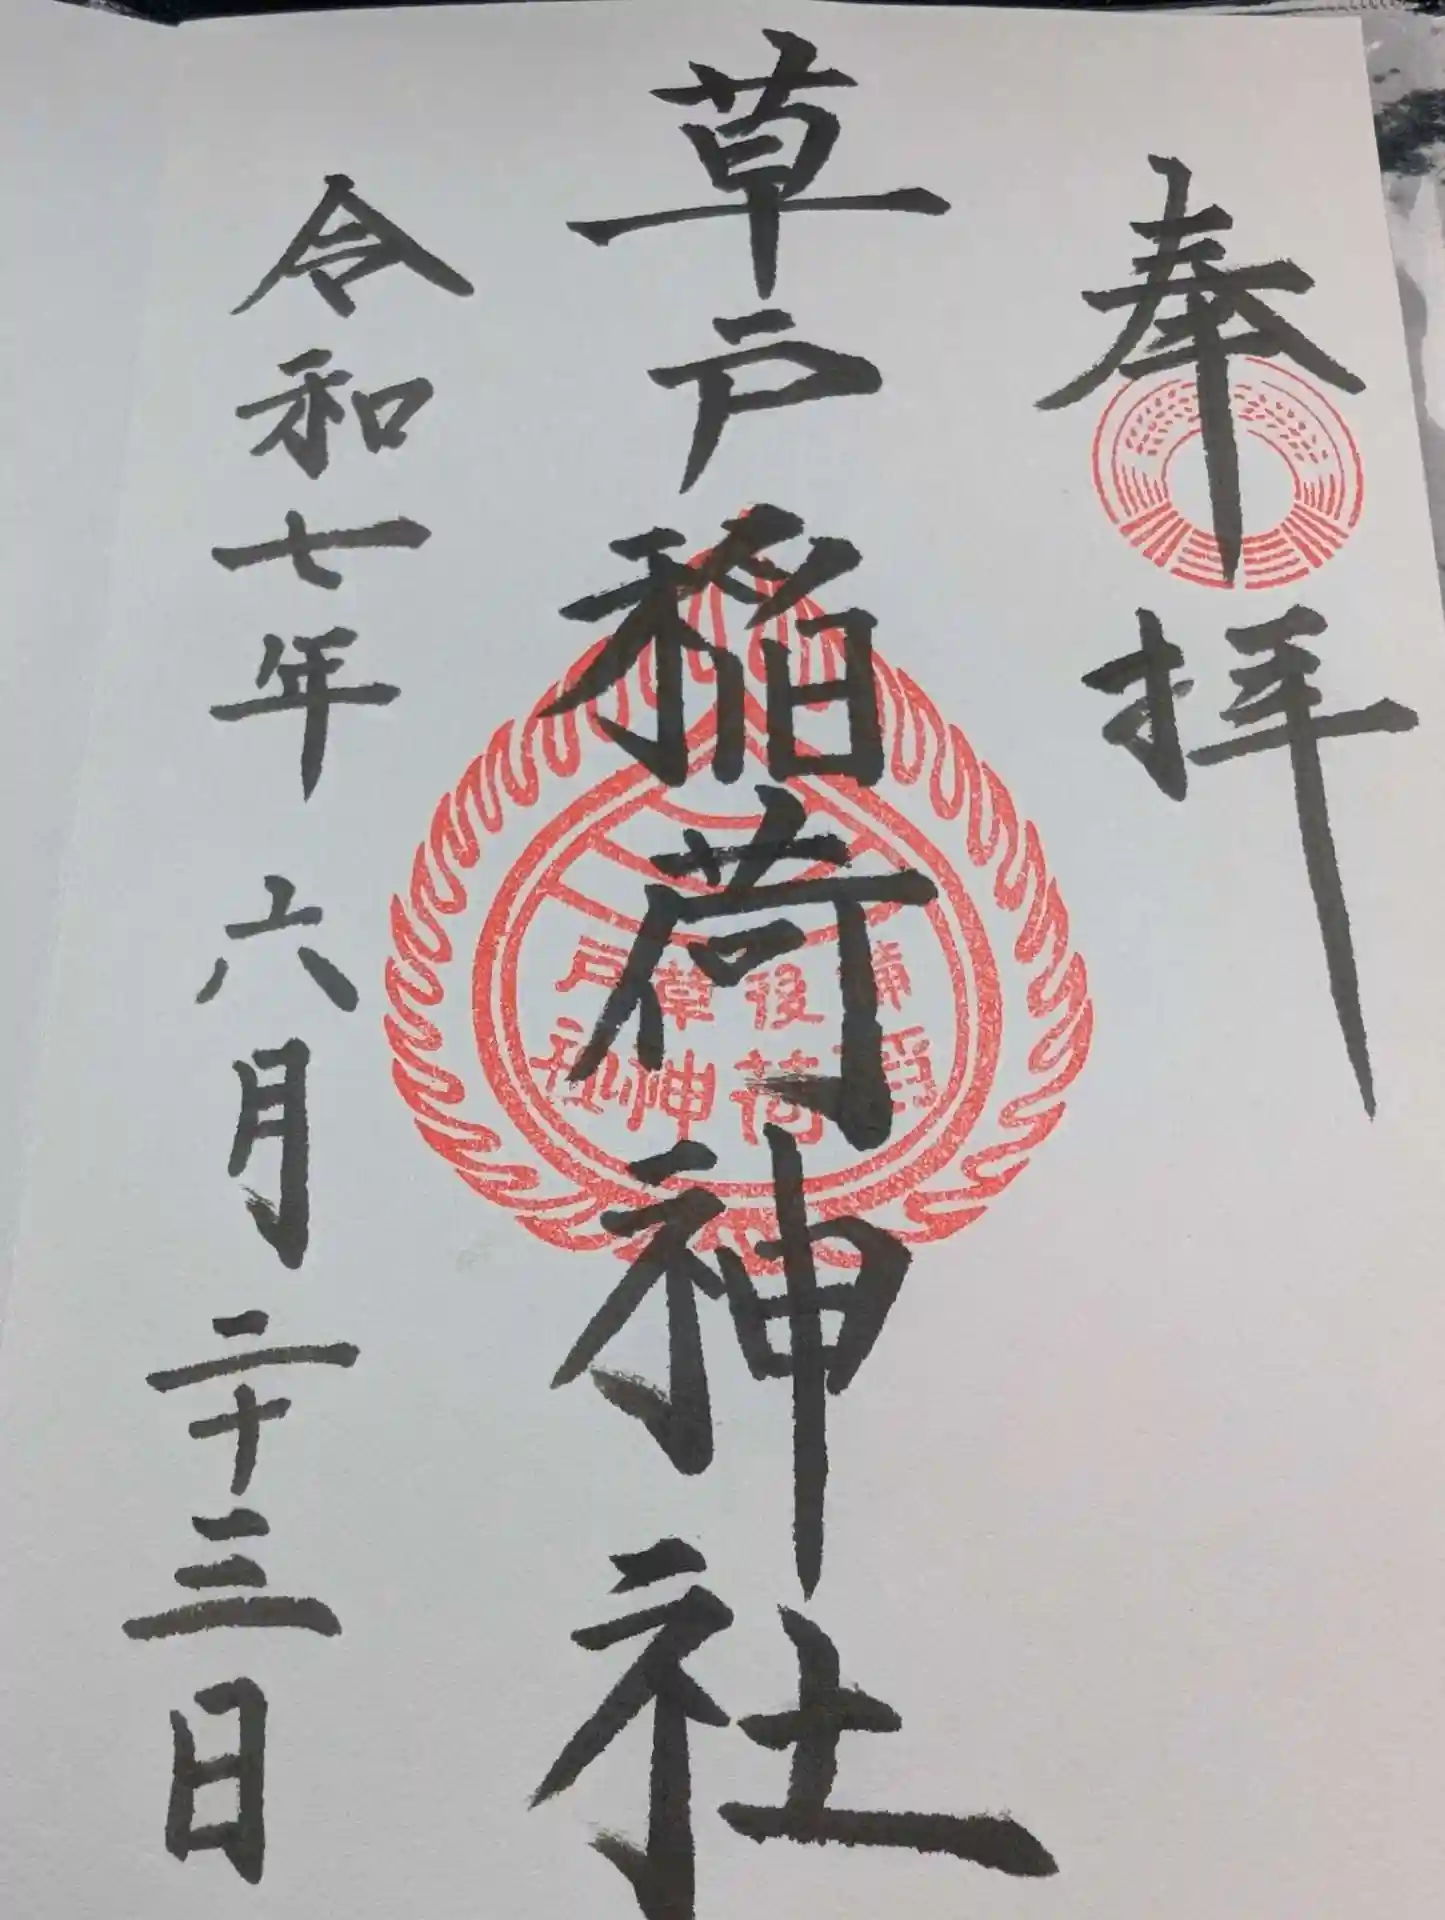 奉拝
草戸稲荷神社
備後草戸
稲荷神社
令和七年 六月二十三日